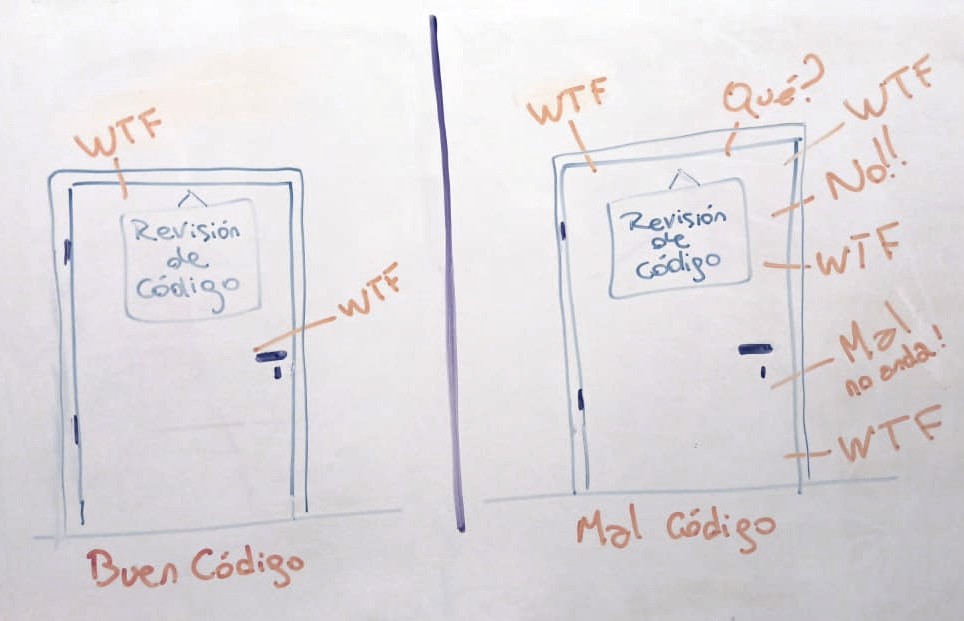 WTF
Revisión
de
Código
WTF
Buen Código
WTF
Qué?
WTF
No!!
Revisión
de
Código
WTF
Mal
no anda!
WTF
Mal Código